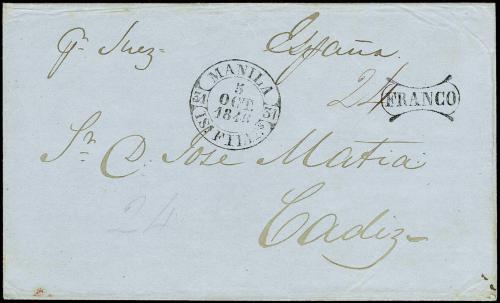 pr. Suez España
24
MANILA
5
OCT.
1848
31 31
ISS FILIPs
FRANCO
Sr. D. Jose Matia
24
Cadiz